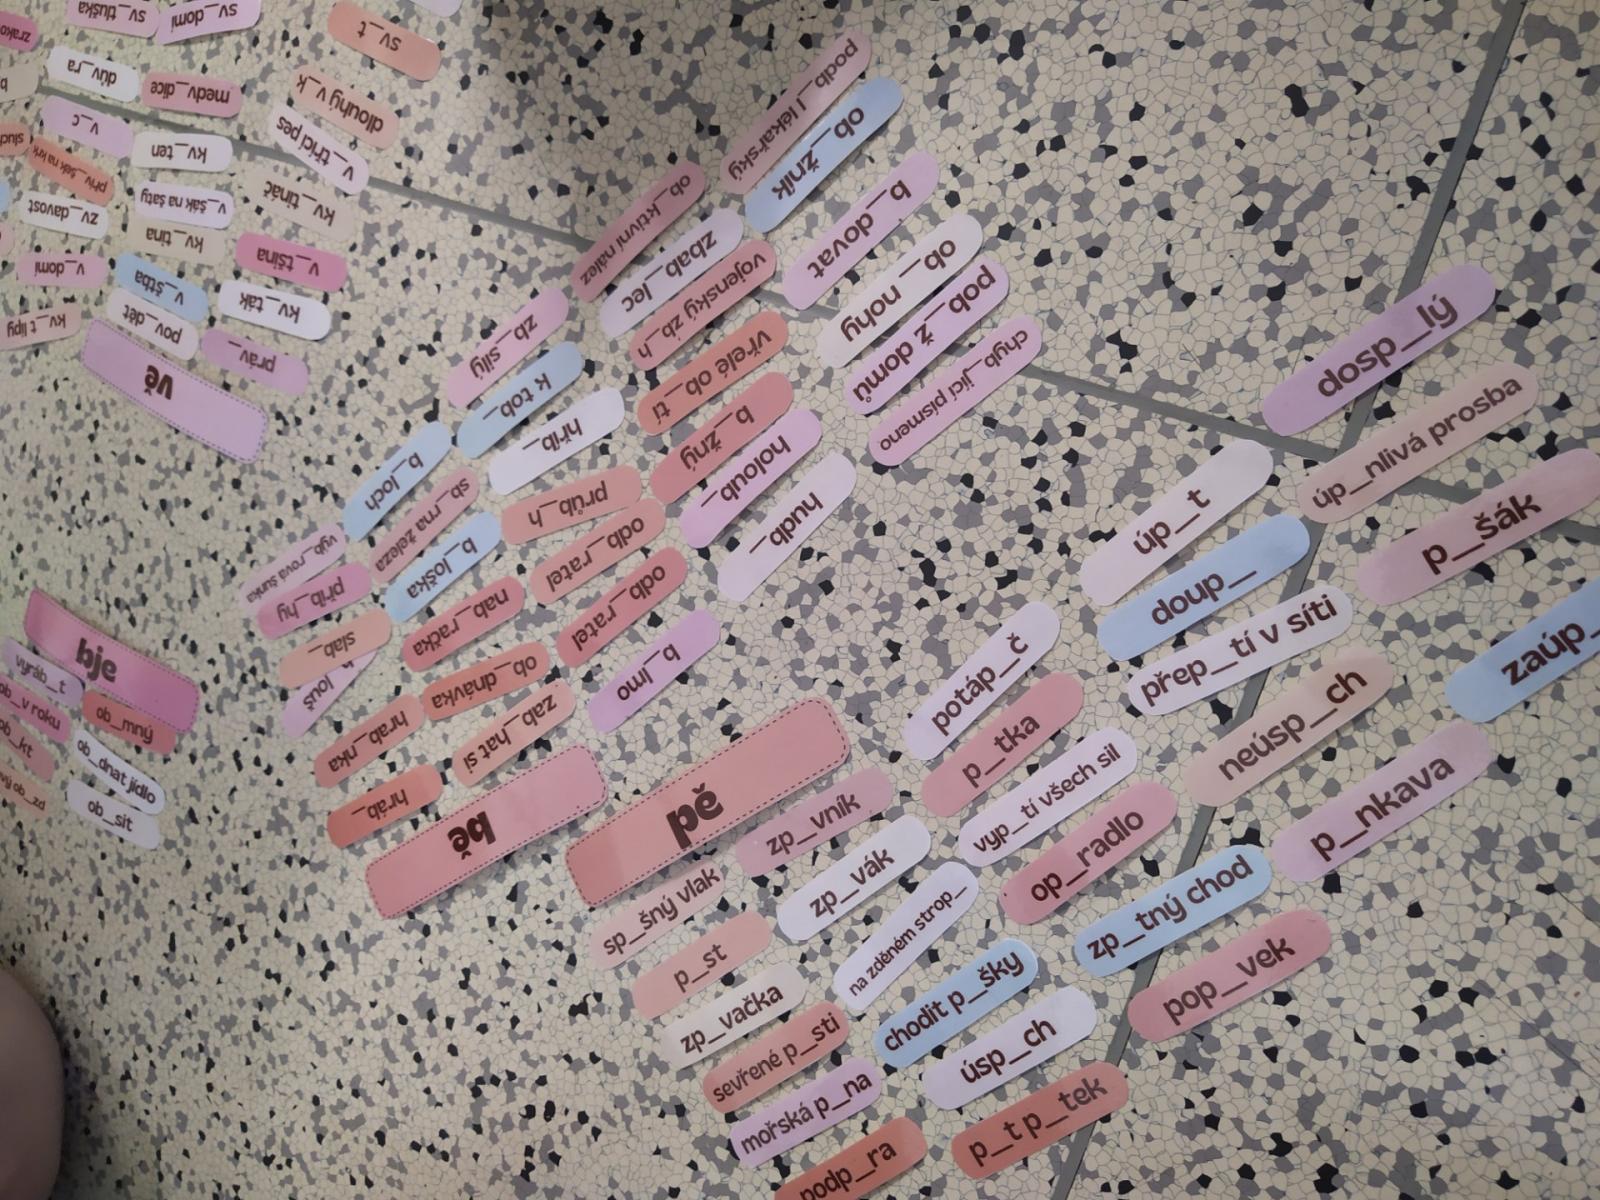 sv_tluška
sv_domi
sv_t
dův_ra
medv_dice
dlouhý v_k
v_c
kv_ten
v_třící pes
přív_šek na krk
zv_davost
v_šák na šaty
kv_tináč
kv_tina
v_domí
v_štba
v_tšina
kv_t lípy
pov_dět
kv_ták
práv_
vě
bje
vyráb_t
ob_mný
ob_dnat jídlo
ob_sit
podb_l lékařský
ob_žník
ob_ktivní nález
b_dovat
zbab_lec
ob_nohy
vojenský zb_h
pob_ž domů
zb_silý
vřelé ob_tí
chyb_jící písmeno
k tob_
b_žný
hřib_
holoub_
b_loch
hudb_
sb_rna železa
průb_h
výb_rová šunka
b_loška
odb_ratel
příb_hy
nab_račka
odb_ratel
slab_
b_lmo
ob_dnávka
hrab_nka
zab_hat si
hráb_
bě
pě
dosp_lý
úp_nlivá prosba
úp_t
p_šák
doup_
přep_tí v síti
zaúp_
potáp_č
neúsp_ch
p_tka
vyp_tí všech sil
p_nkava
zp_vník
op_radlo
zp_vák
sp_šný vlak
zp_tný chod
na zděném strop_
p_st
pop_vek
chodit p_šky
zp_vačka
sevřené p_sti
úsp_ch
mořská p_na
p_t p_tek
podp_ra